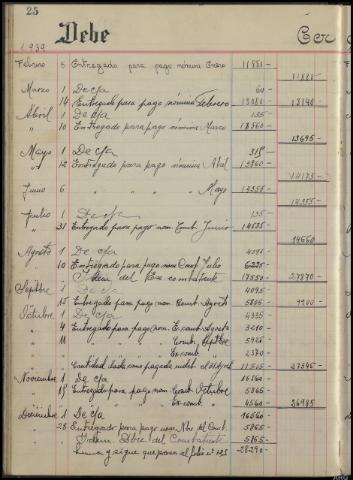 25
1.939
Debe
Cer
Febrero 5 Entregado para pago nómina Enero 11881-
11881-
Marzo 1 De c/a 60-
" 14 Entregado para pago nómina Febrero 13080- 13140-
Abril 1 De c/a 135-
" 10 Entregado para pago nómina Marzo 13560-
13695-
Mayo 1 De c/a 315-
" 12 Entregado para pago nómina Abril 13860-
14175-
Junio 6 " " " " Mayo 14355-
14355-
Julio 1 De c/a 135-
" 31 Entregado para pago nom. Comb. Junio 14525-
14660-
Agosto 1 De c/a
" 10 Entregado para pago nom. Comb. Julio
Idem del Ex combatiente 17550- 27870-
Septbre 1 De c/a 4095-
" 15 Entregado para pago nom. Comb. Agosto 5805- 9900-
Octubre 1 De c/a 4335-
" 4 Entregado para pago nom. Ex comb. Agosto
" 11 " " " " Comb. Septbre
" " " " Ex comb. " 2370-
Cantidad dada como pagada 11505- 27345-
Noviembre 1 De c/a
" 15 Entregado para pago nom. Comb. Octubre 5865-
" " " " Ex comb. " 4560- 26985-
Diciembre 1 De c/a 16560-
" 28 Entregado para pago nom. Nbre del Comb. 5865-
" Idem Dbre del Combatiente 5865-
Suma y sigue que pasan al folio nº 28290-